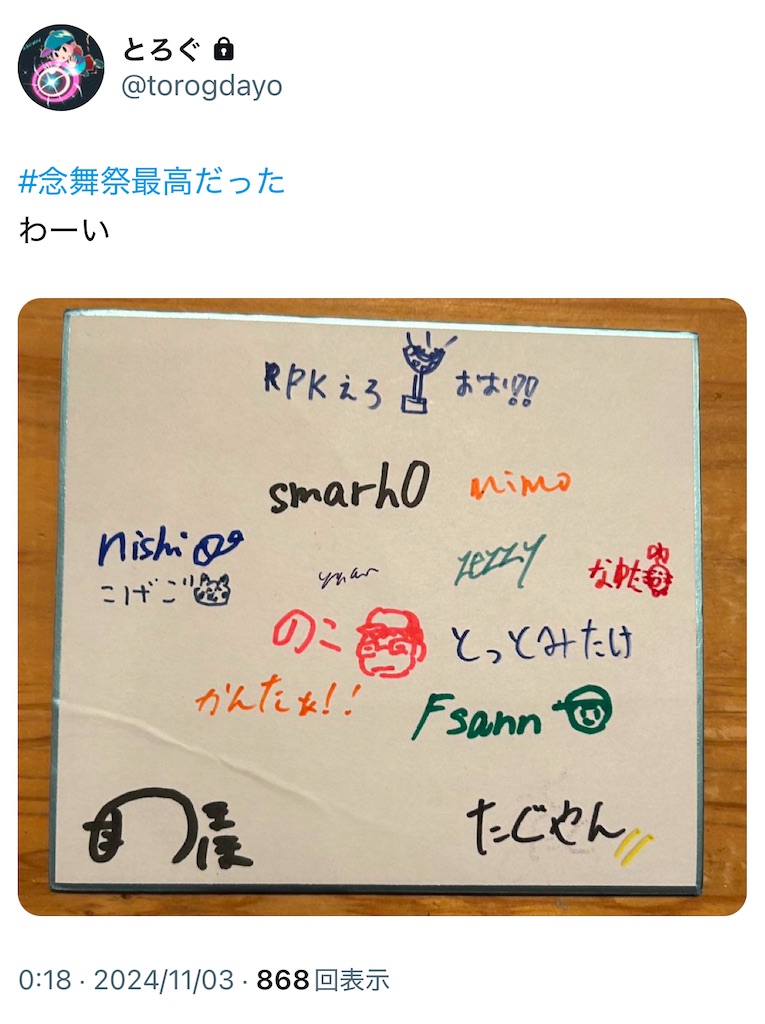 とろぐ
@torogdayo
#念舞祭最高だった
わーい
RPKえろ おお!!
smarh0 mimo
nishi
こげご
zezzy なゆた
のこ とっとみたけ
かんたぁ!!
Fsann
たじやん
0:18 · 2024/11/03 · 868回表示